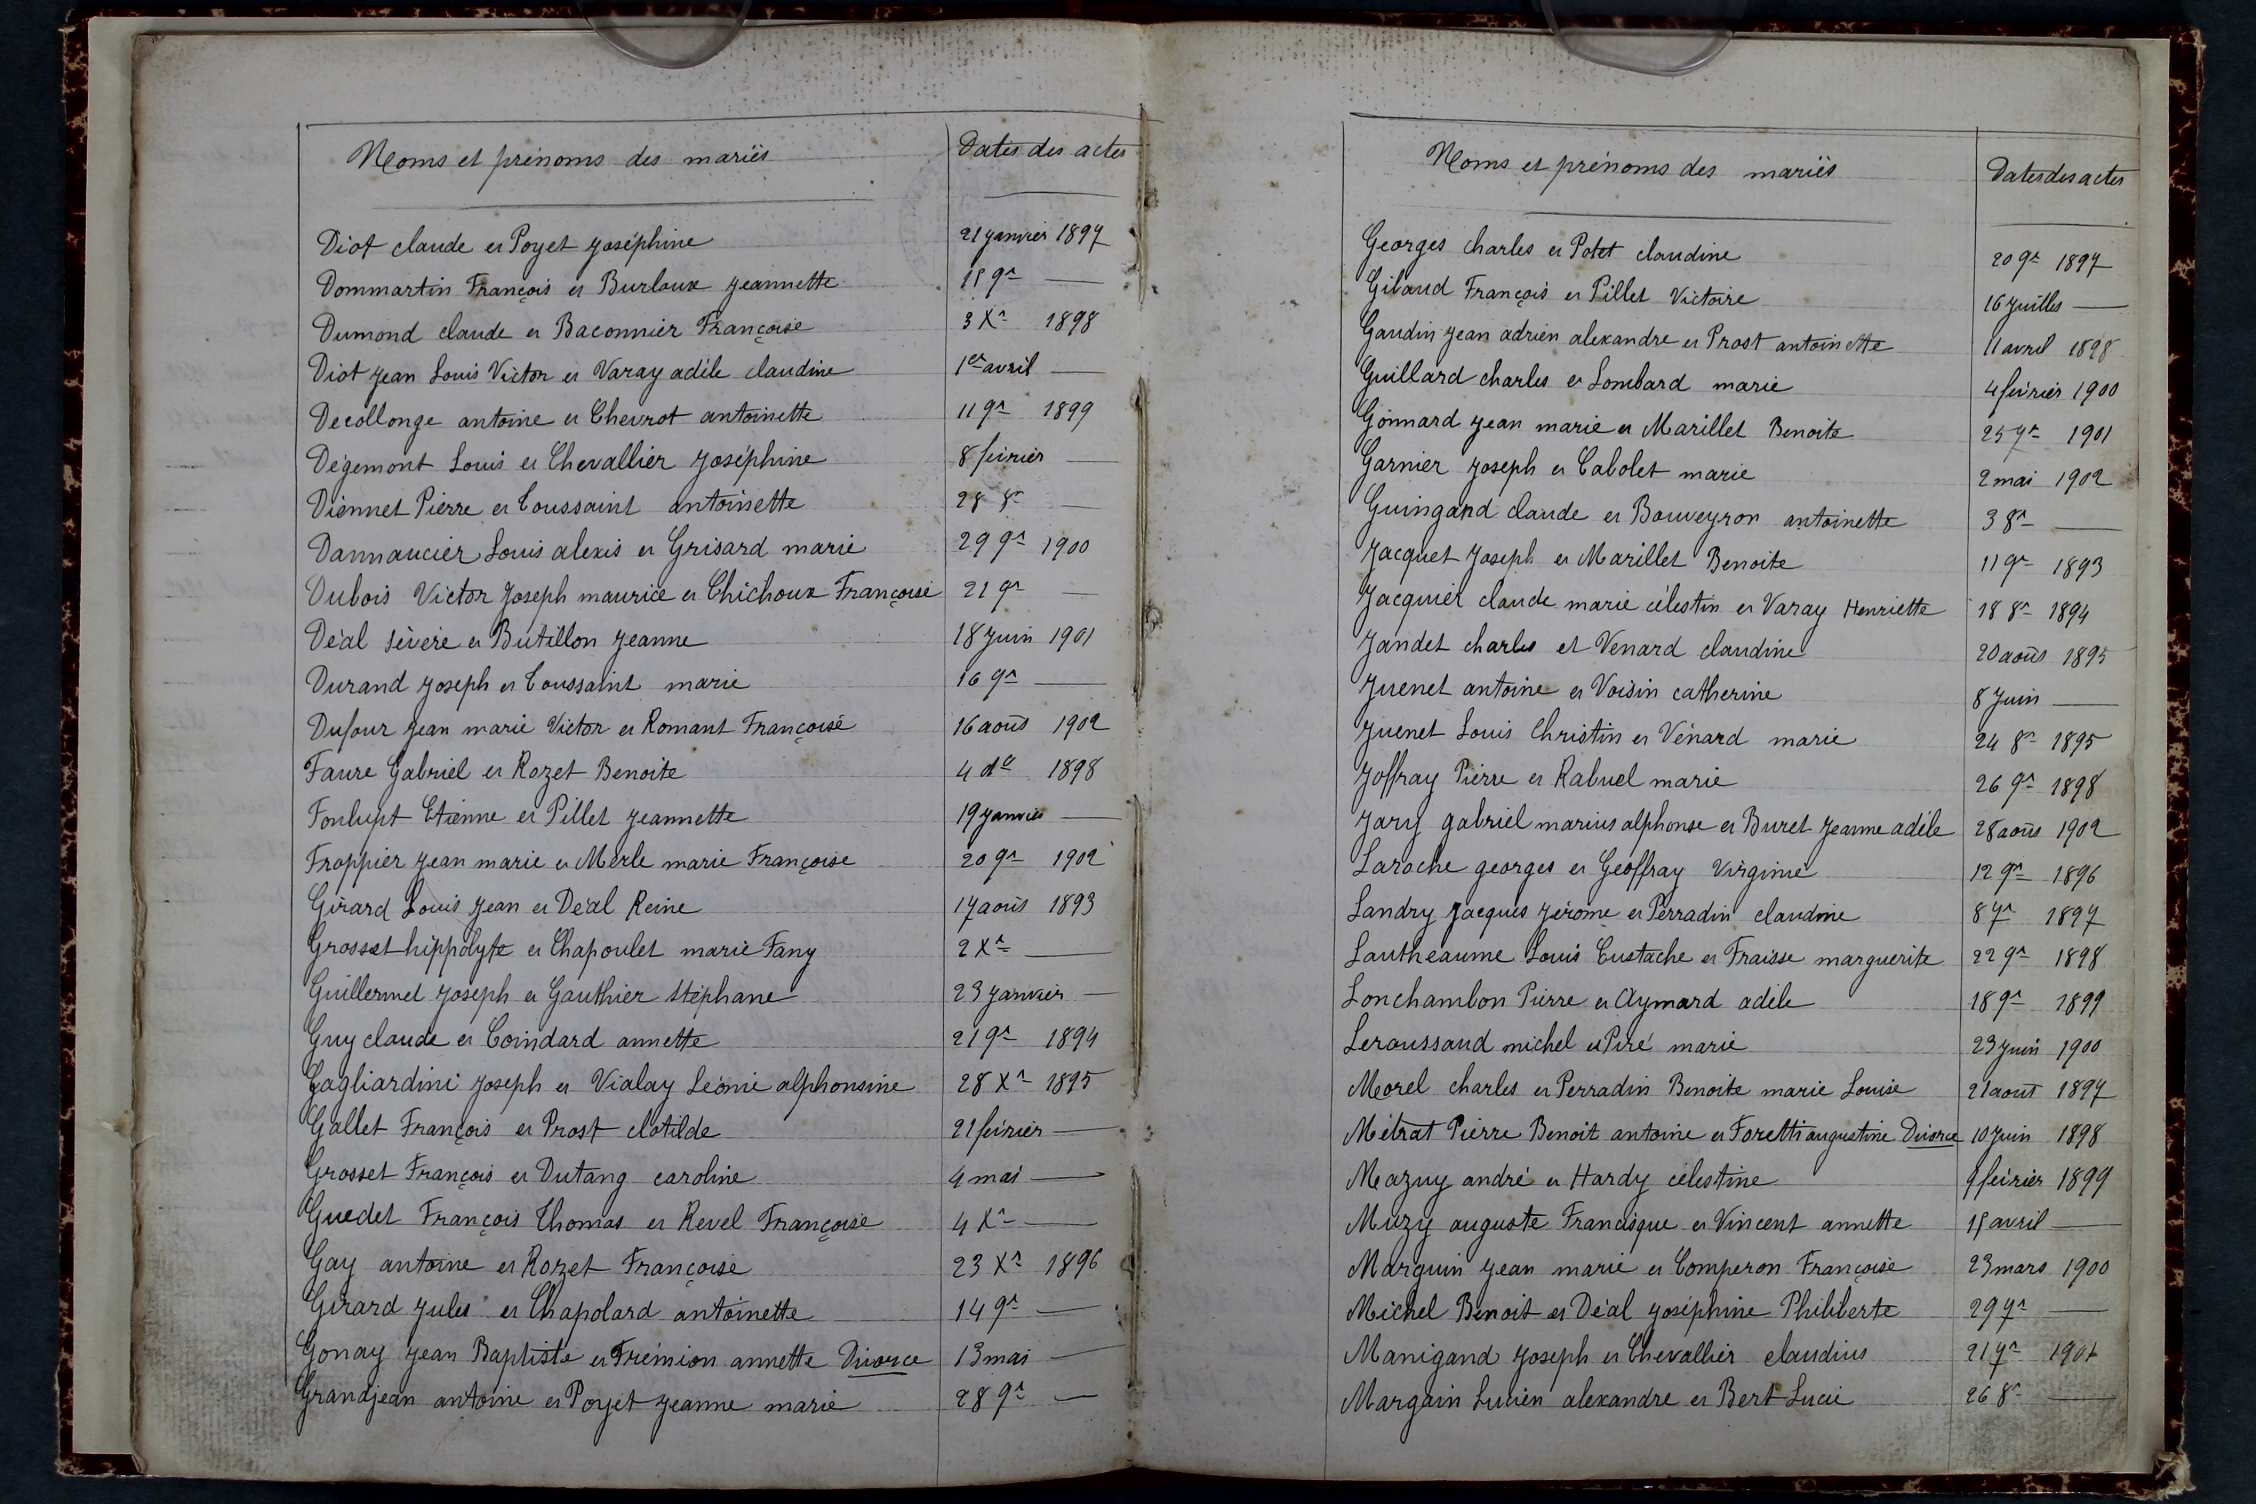 Noms et prénoms des mariés Dates des actes
Diot claude et Poyet Joséphine 21 Janvier 1897
Dommartin François et Burlaux Jeannette 15 9re —
Dumond claude et Baconnier Françoise 3 Xre 1898
Diot Jean Louis Victor et Varay adèle claudine 1er avril —
Decollonge antoine et Chevrot antoinette 11 9re 1899
Dégemont Louis et Chevallier Joséphine 8 février —
Diennet Pierre et Toussaint antoinette 28 8re —
Dannaucier Louis alexis et Grisard marie 29 9re 1900
Dubois Victor Joseph maurice et Chichoux Françoise 21 9re —
Déal Sévère et Butillon Jeanne 18 Juin 1901
Durand Joseph et Toussaint marie 16 9re —
Dufour Jean marie Victor et Romant Françoise 16 août 1902
Faure Gabriel et Rozet Benoite 4 do 1898
Fonlupt Etienne et Pillet Jeannette 19 Janvier —
Froppier Jean marie et Merle marie Françoise 20 9re 1902
Girard Louis Jean et Déal Reine 17 août 1893
Grosset hippolyte et Chapoulet marie Fany 2 Xre —
Guillermet Joseph et Gauthier Stéphane 23 Janvier —
Guy claude et Coindard annette 21 9re 1894
Gagliardini Joseph et Vialay Léonie alphonsine 28 Xre 1895
Gallet François et Prost clotilde 21 février —
Grosset François et Dutang caroline 4 mai —
Guedet François Thomas et Revel Françoise 4 Xre —
Gay antoine et Rozet Françoise 23 Xre 1896
Girard Jules et Chapolard antoinette 14 9re —
Gonay Jean Baptiste et Frémion annette Divorce 13 mai —
Grandjean antoine et Poyet Jeanne marie 28 9re —
Noms et prénoms des mariés Dates des actes
Georges charles et Potet claudine 20 9re 1897
Giband François et Pillet Victoire 16 Juillet —
Gaudin Jean adrien alexandre et Prost antoinette 11 avril 1898
Guillard charles et Lombard marie 4 février 1900
Gonnard Jean marie et Marillet Benoite 25 7re 1901
Garnier Joseph et Cabolet marie 2 mai 1902
Guingand claude et Bouveyron antoinette 3 8re —
Jacquet Joseph et Marillet Benoite 11 9re 1893
Jacquier claude marie célestin et Varay Henriette 18 8re 1894
Jandet charles et Venard claudine 20 août 1895
Juenet antoine et Voisin catherine 8 Juin —
Juenet Louis Christin et Vénard marie 24 8re 1895
Joffray Pierre et Rabuel marie 26 9re 1898
Jary gabriel marius alphonse et Buret Jeanne adèle 28 août 1902
Laroche georges et Geoffray Virginie 12 9re 1896
Landry Jacques Jérome et Perradin claudine 8 7re 1897
Lautheaume Louis Eustache et Fraisse marguerite 22 9re 1898
Lonchambon Pierre et Aymard adèle 18 9re 1899
Leroussaud michel et Piré marie 23 Juin 1900
Morel charles et Perradin Benoite marie Louise 21 août 1897
Métrat Pierre Benoit antoine et Foretti augustine Divorce 10 Juin 1898
Mazuy andré et Hardy célestine 9 février 1899
Muzy auguste Francisque et Vincent annette 15 avril —
Marguin Jean marie et Comperon Françoise 23 mars 1900
Michel Benoit et Déal Joséphine Philiberte 29 7re —
Manigand Joseph et Chevallier claudius 21 7re 1901
Margain Lucien alexandre et Bert Lucie 26 8re —